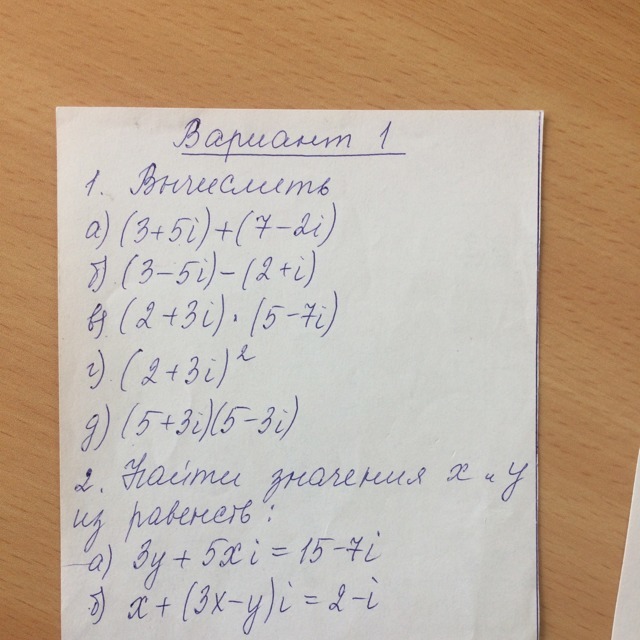 Вариант 1
1. Вычислить
а) (3+5i)+(7-2i)
б) (3-5i)-(2+i)
в) (2+3i)·(5-7i)
г) (2+3i)²
д) (5+3i)(5-3i)
2. Найти значения х и у
из равенств:
а) 3y+5xi=15-7i
б) x+(3x-y)i=2-i